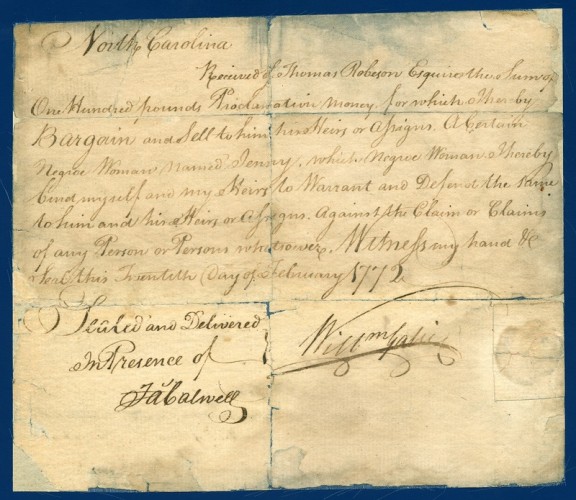 North Carolina
Received of Thomas Robeson Esquire the Sum of
One Hundred pounds Proclamation money for which I hereby
Bargain and Sell to him his Heirs or Assigns. A Certain
Negroe Woman Named Jenny, which Negroe Woman I hereby
bind myself and my Heirs to Warrant and Defend the Same
to him and his Heirs or Assigns. Against the Claim or Claims
of any Person or Persons whatsoever. Witness my hand &
Seal this Twentieth Day of February 1772
Sealed and Delivered
In Presence of
Willm